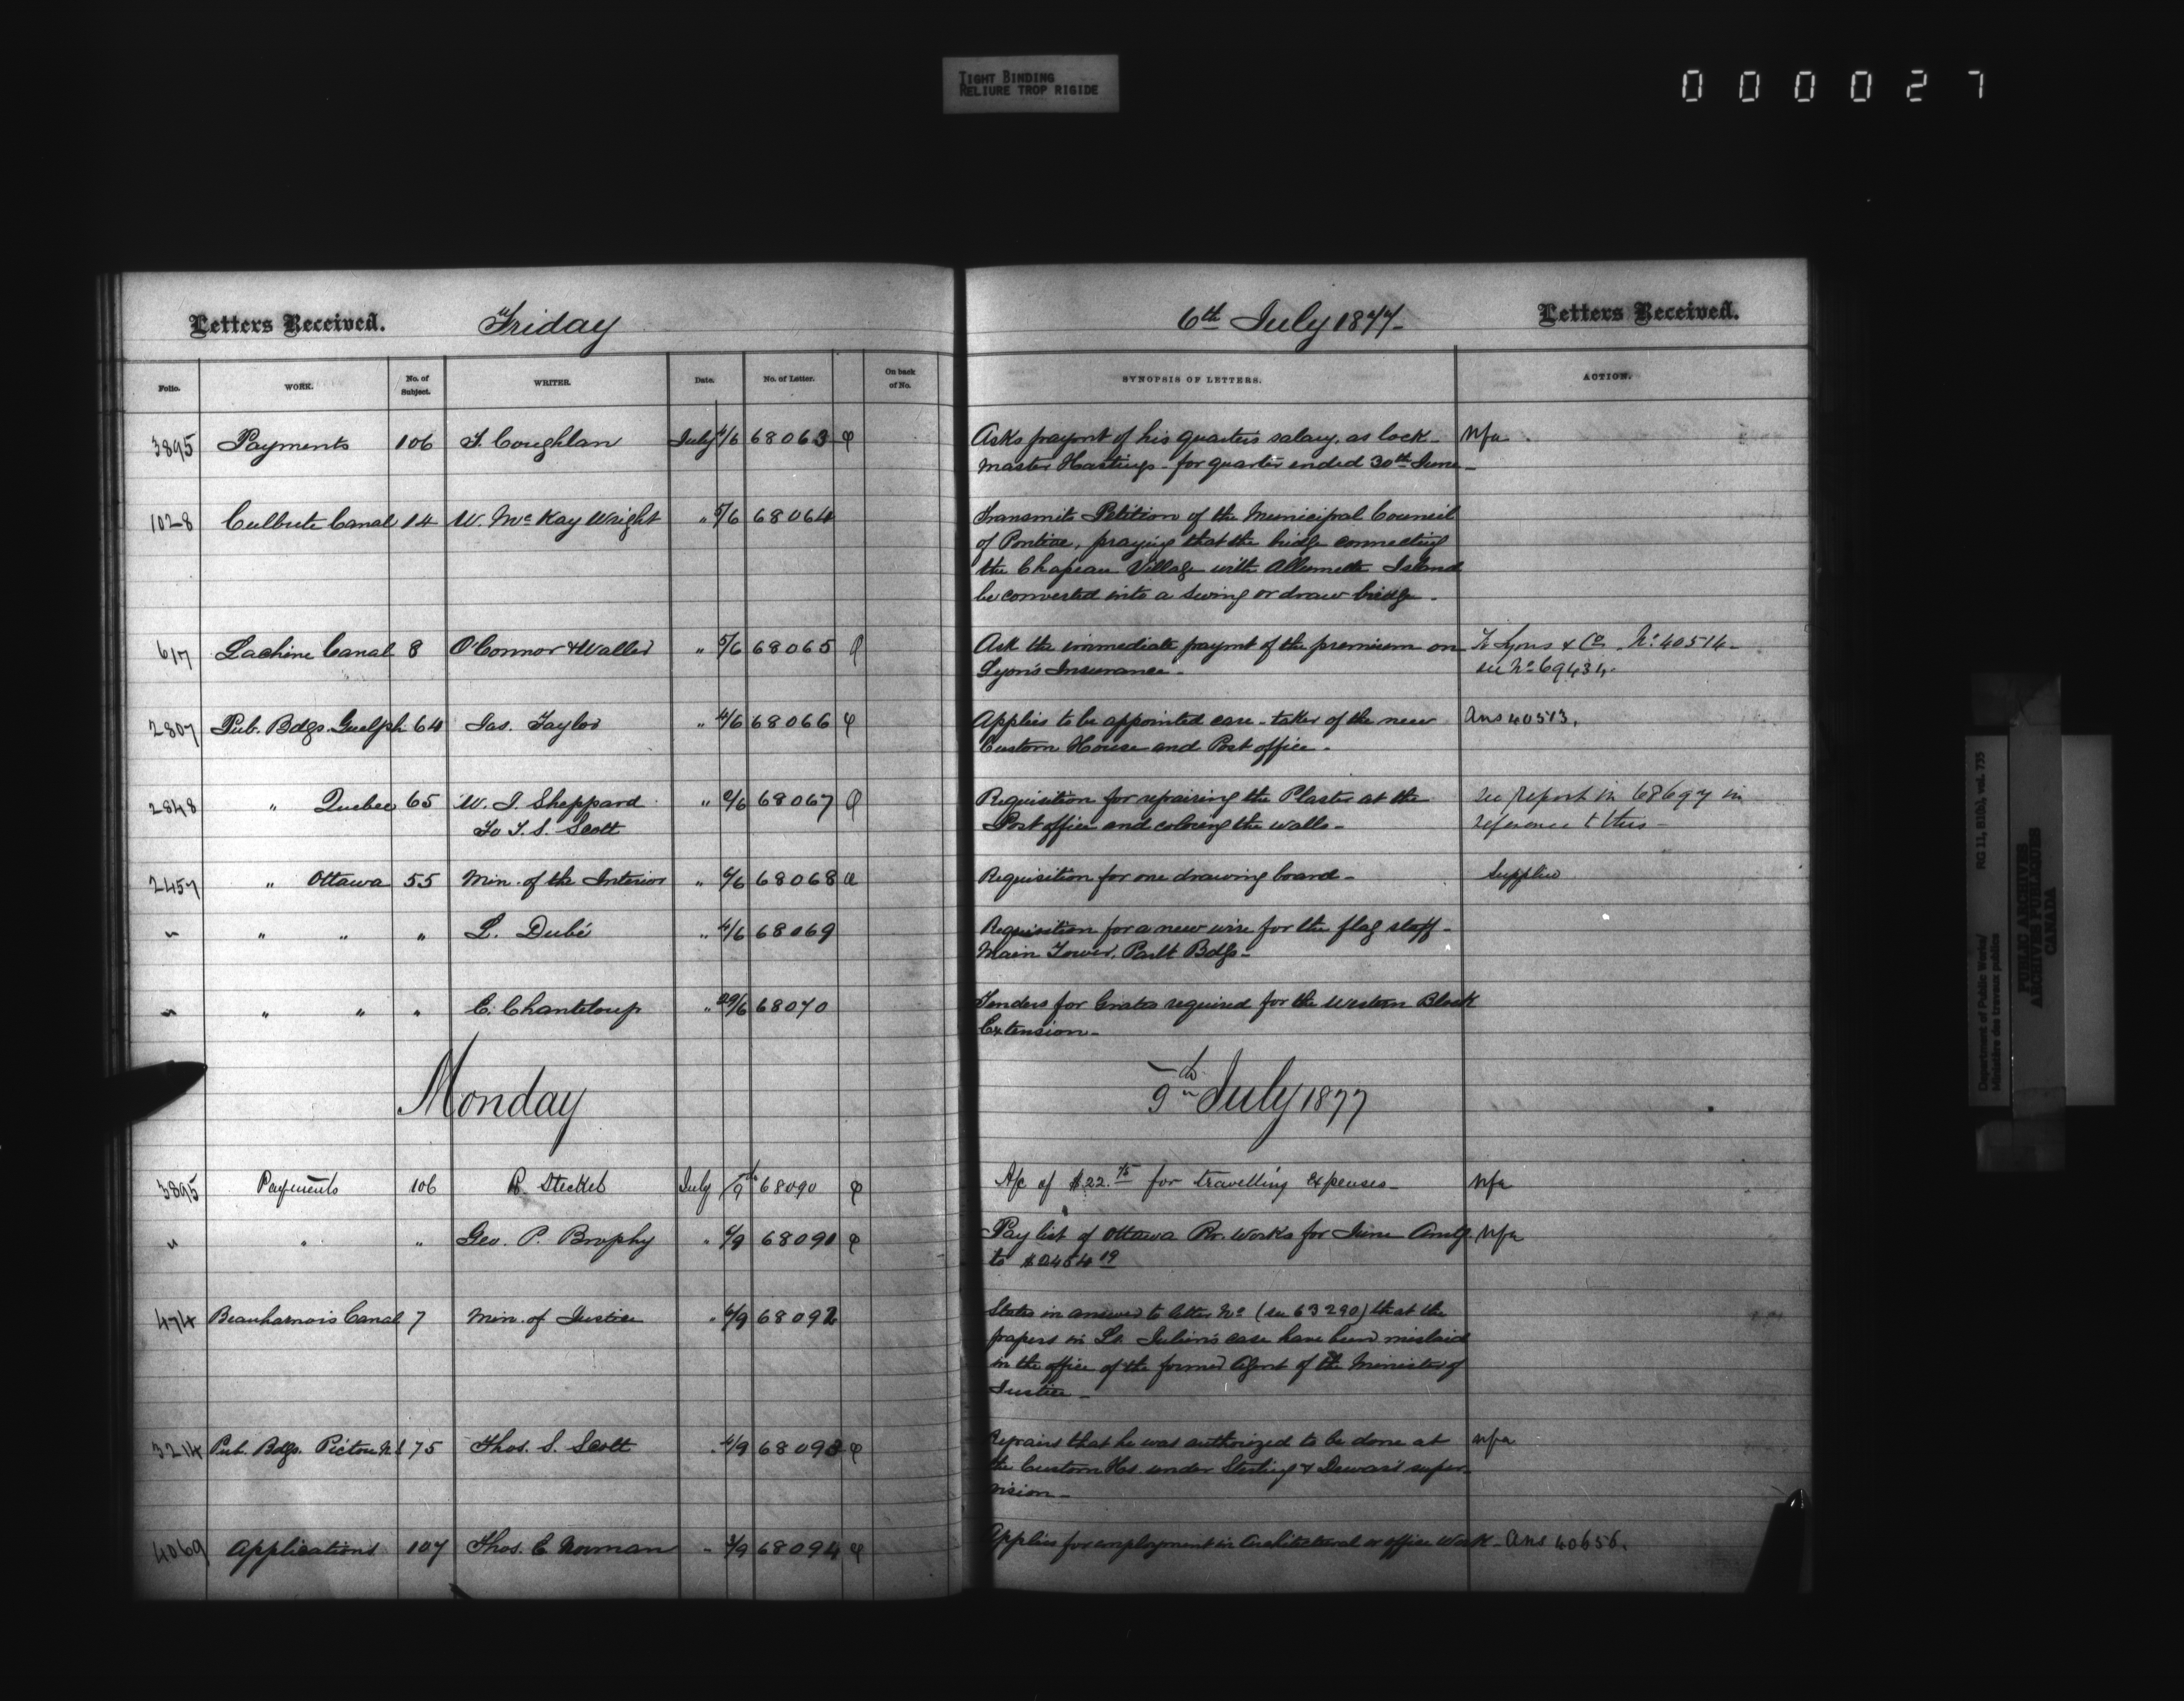 TIGHT BINDING
RELIURE TROP RIGIDE
000027
Letters Received. Friday
Folio. WORK. No. of Subject. WRITER. Date. No. of Letter. On back of No.
3895 Payments 106 T. Coughlan July 4/6 68063 φ
1028 Culbute Canal 14 W. McKay Wright " 5/6 68064
617 Lachine Canal 8 O'Connor & Waller " 5/6 68065 φ
2807 Pub. Bdgs. Guelph 64 Jas. Taylor " 4/6 68066 φ
2848 " Quebec 65 W. J. Sheppard " 6/6 68067 φ
To T. S. Scott
2457 " Ottawa 55 Min. of the Interior " 6/6 68068
" " " " L. Dubé " 4/6 68069
" " " " C. Chanteloup " 29/6 68070
Monday
3895 Payments 106 R. Steckel July /9 68090 φ
" " " Geo. P. Brophy " 6/9 68091 φ
474 Beauharnois Canal 7 Min. of Justice " 6/9 68092
3214 Pub. Bdgs. Pictou N.S 75 Thos. S. Scott " 6/9 68093 φ
4069 Applications 107 Thos. C. Norman " 3/9 68094 φ
6th July 1877 Letters Received.
SYNOPSIS OF LETTERS. ACTION.
Asks paymt of his quarter's salary, as lock- Nfa
master Hastings for quarter ended 30th June
Transmits Petition of the Municipal Council
of Pontiac, praying that the bridge connecting
the Chapeau Village with Allumette Island
be converted into a swing or draw bridge.
Ask the immediate paymt of the premium on Lyons & Co No. 40514
Lyon's Insurance see No 69431
Applies to be appointed care-taker of the new Ans 40513.
Custom House and Post office.
Requisition for repairing the Plaster at the see report in 68697 in
Post office and coloring the walls reference to this
Requisition for one drawing board Supplied
Requisition for a new wire for the flag staff
Main Tower, Parlt Bdgs
Tenders for Grates required for the Western Block
Extension
9th July 1877
A/c of $22.75 for travelling expenses Nfa
Pay list of Ottawa Rr. Works for June Amtg Nfa
to $2454 19
States in answer to letter No (see 63290) that the
papers in St. Julien's case have been mislaid
in the office of the former Agent of the Minister of
Justice
Repairs that he was authorized to be done at Nfa
the Custom Hs. under Sterling & Dewar's super-
vision
Applies for employment in Architectural or office Work Ans 40656.
Department of Public Works/
Ministère des travaux publics
RG 11, B1(b), vol. 735
PUBLIC ARCHIVES
ARCHIVES PUBLIQUES
CANADA